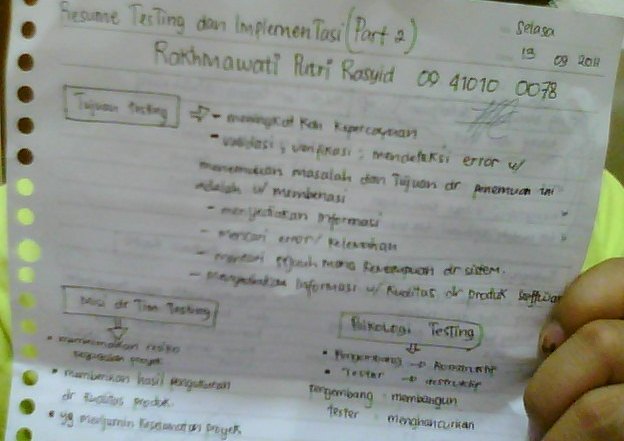 Resume Testing dan Implementasi (Part 2)
Selasa
13 09 2011
Rakhmawati Putri Rasyid 09 41010 0078
Tujuan testing
- meningkatkan kepercayaan
- validasi ; verifikasi ; mendeteksi error u/
menemukan masalah dan Tujuan dr penemuan ini
adalah u/ membenasi
- menyediakan informasi
- mencari error / kelemahan
- mencari sejauh mana kemampuan dr sistem.
- menyediakan informasi u/ kualitas dr produk software
Misi dr Tim Testing
• meminimalkan resiko
kegagalan proyek
• memberikan hasil pengukuran
dr kualitas produk.
• yg menjamin keselamatan proyek
Psikologi Testing
• Pengembang → Konstruktif
• Tester → destruktif
Pengembang : membangun
Tester : menghancurkan